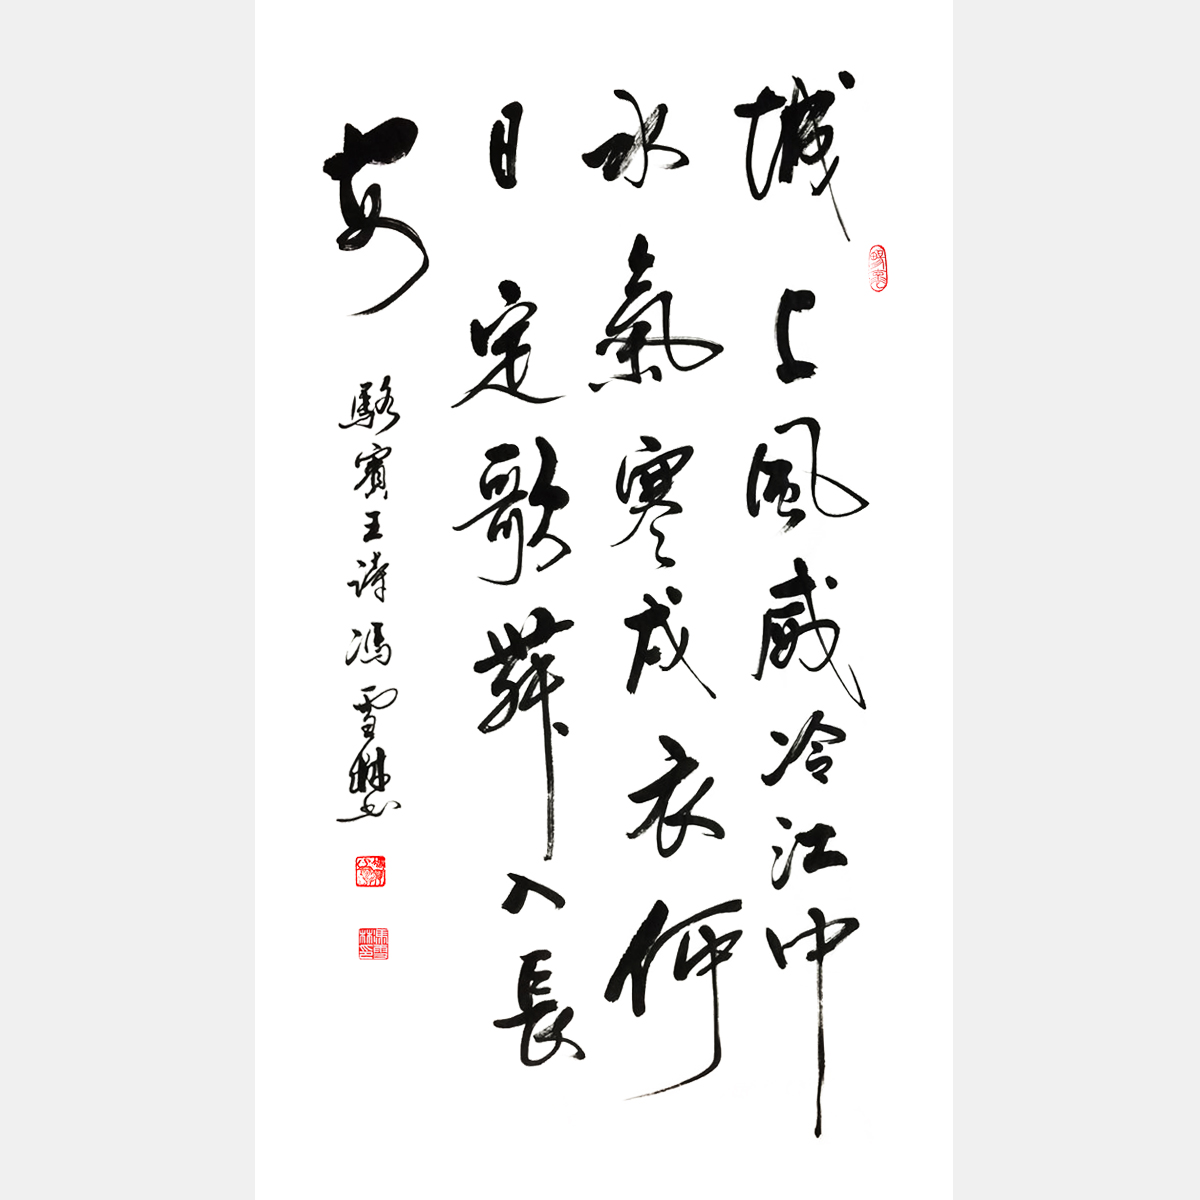 城上風威冷江中
水氣寒戎衣何
日定歌舞入長
安
駱賓王詩馮雪林书